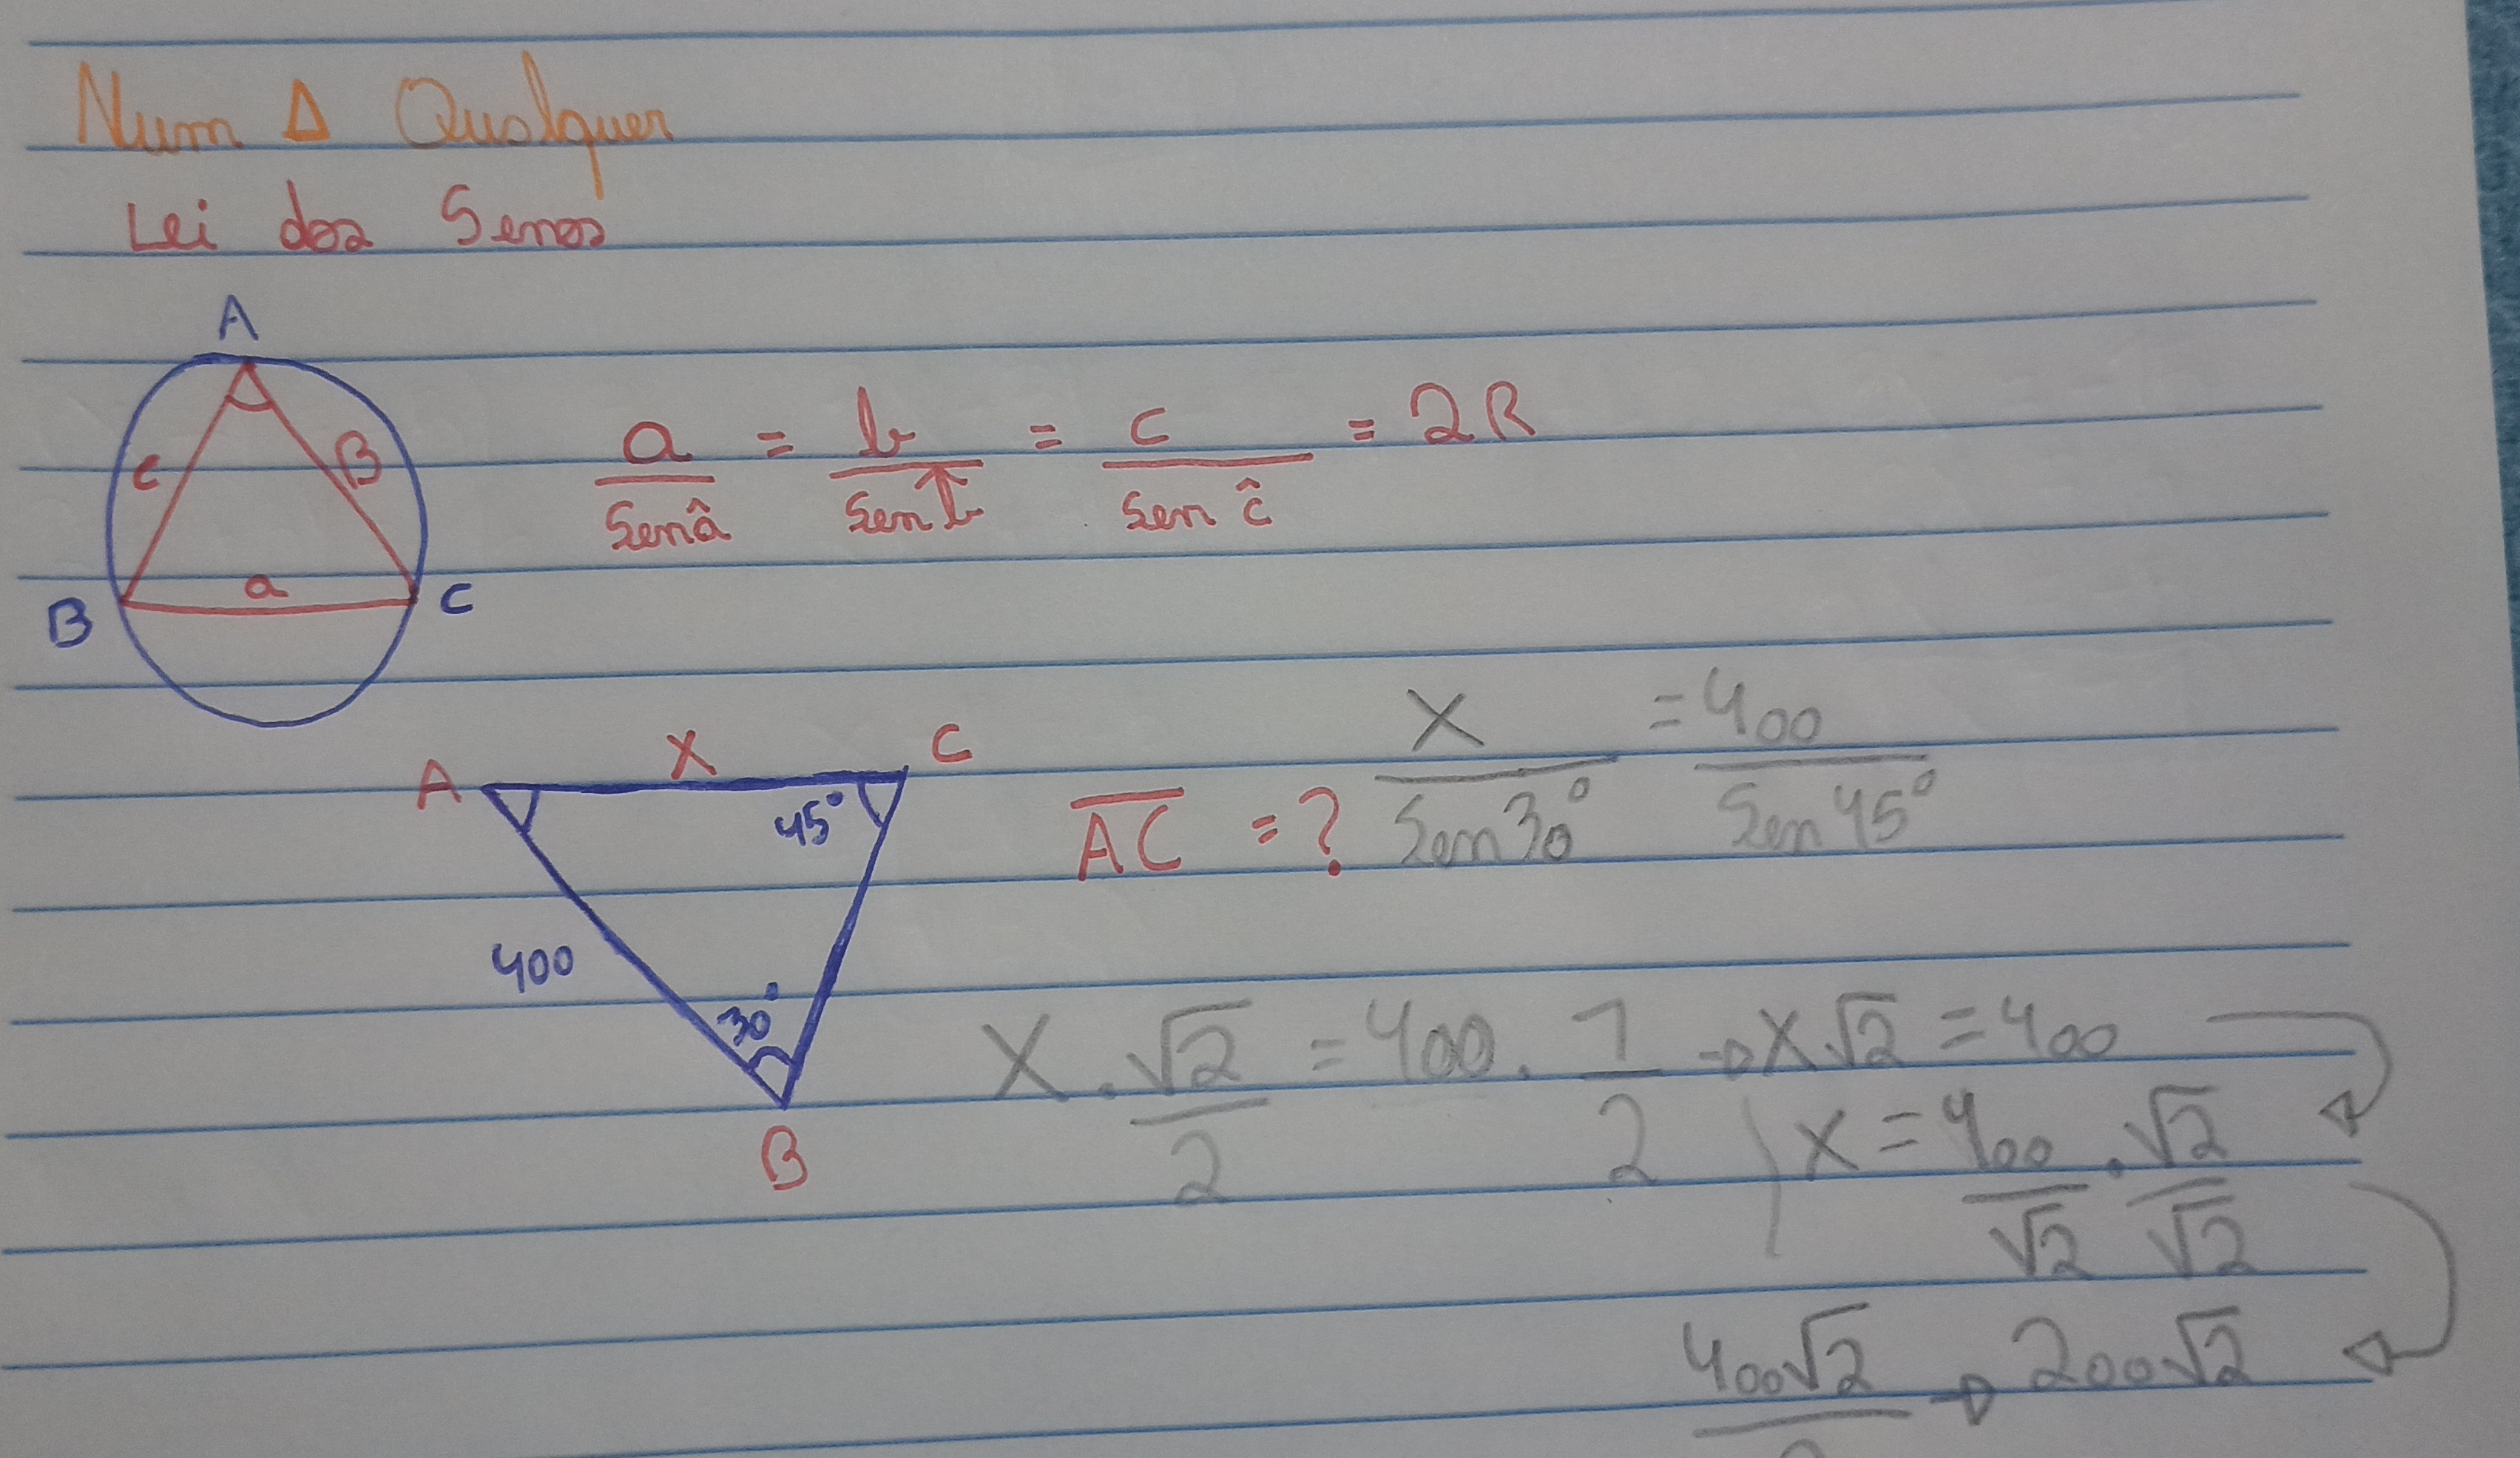 Num Δ Qualquer
Lei dos Senos
A
C B
a
B C
a/Sen â = b/Sen b̂ = c/Sen ĉ = 2R
A X C
45°
400
30°
B
AC = ?
X/Sen 30° = 400/Sen 45°
X . √2/2 = 400 . 1/2 → X√2 = 400
X = 400/√2 . √2/√2
400√2/2 → 200√2